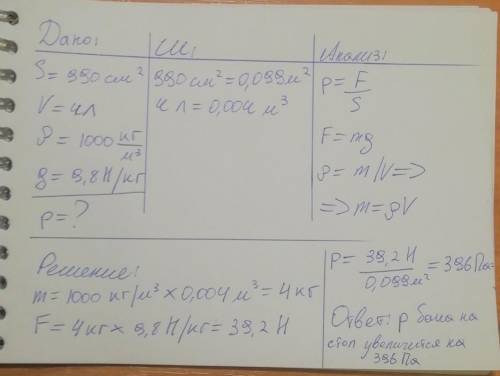 Дано:
S = 990 см²
V = 4 л
ρ = 1000 кг/м³
g = 9,8 Н/кг
p = ?
СИ:
990 см² = 0,099 м²
4 л = 0,004 м³
Анализ:
p = F/S
F = mg
ρ = m/V =>
=> m = ρV
Решение:
m = 1000 кг/м³ x 0,004 м³ = 4 кг
F = 4 кг x 9,8 Н/кг = 39,2 Н
p = 39,2 Н/0,099 м² = 396 Па
Ответ: p бака на
стол увеличится на
396 Па